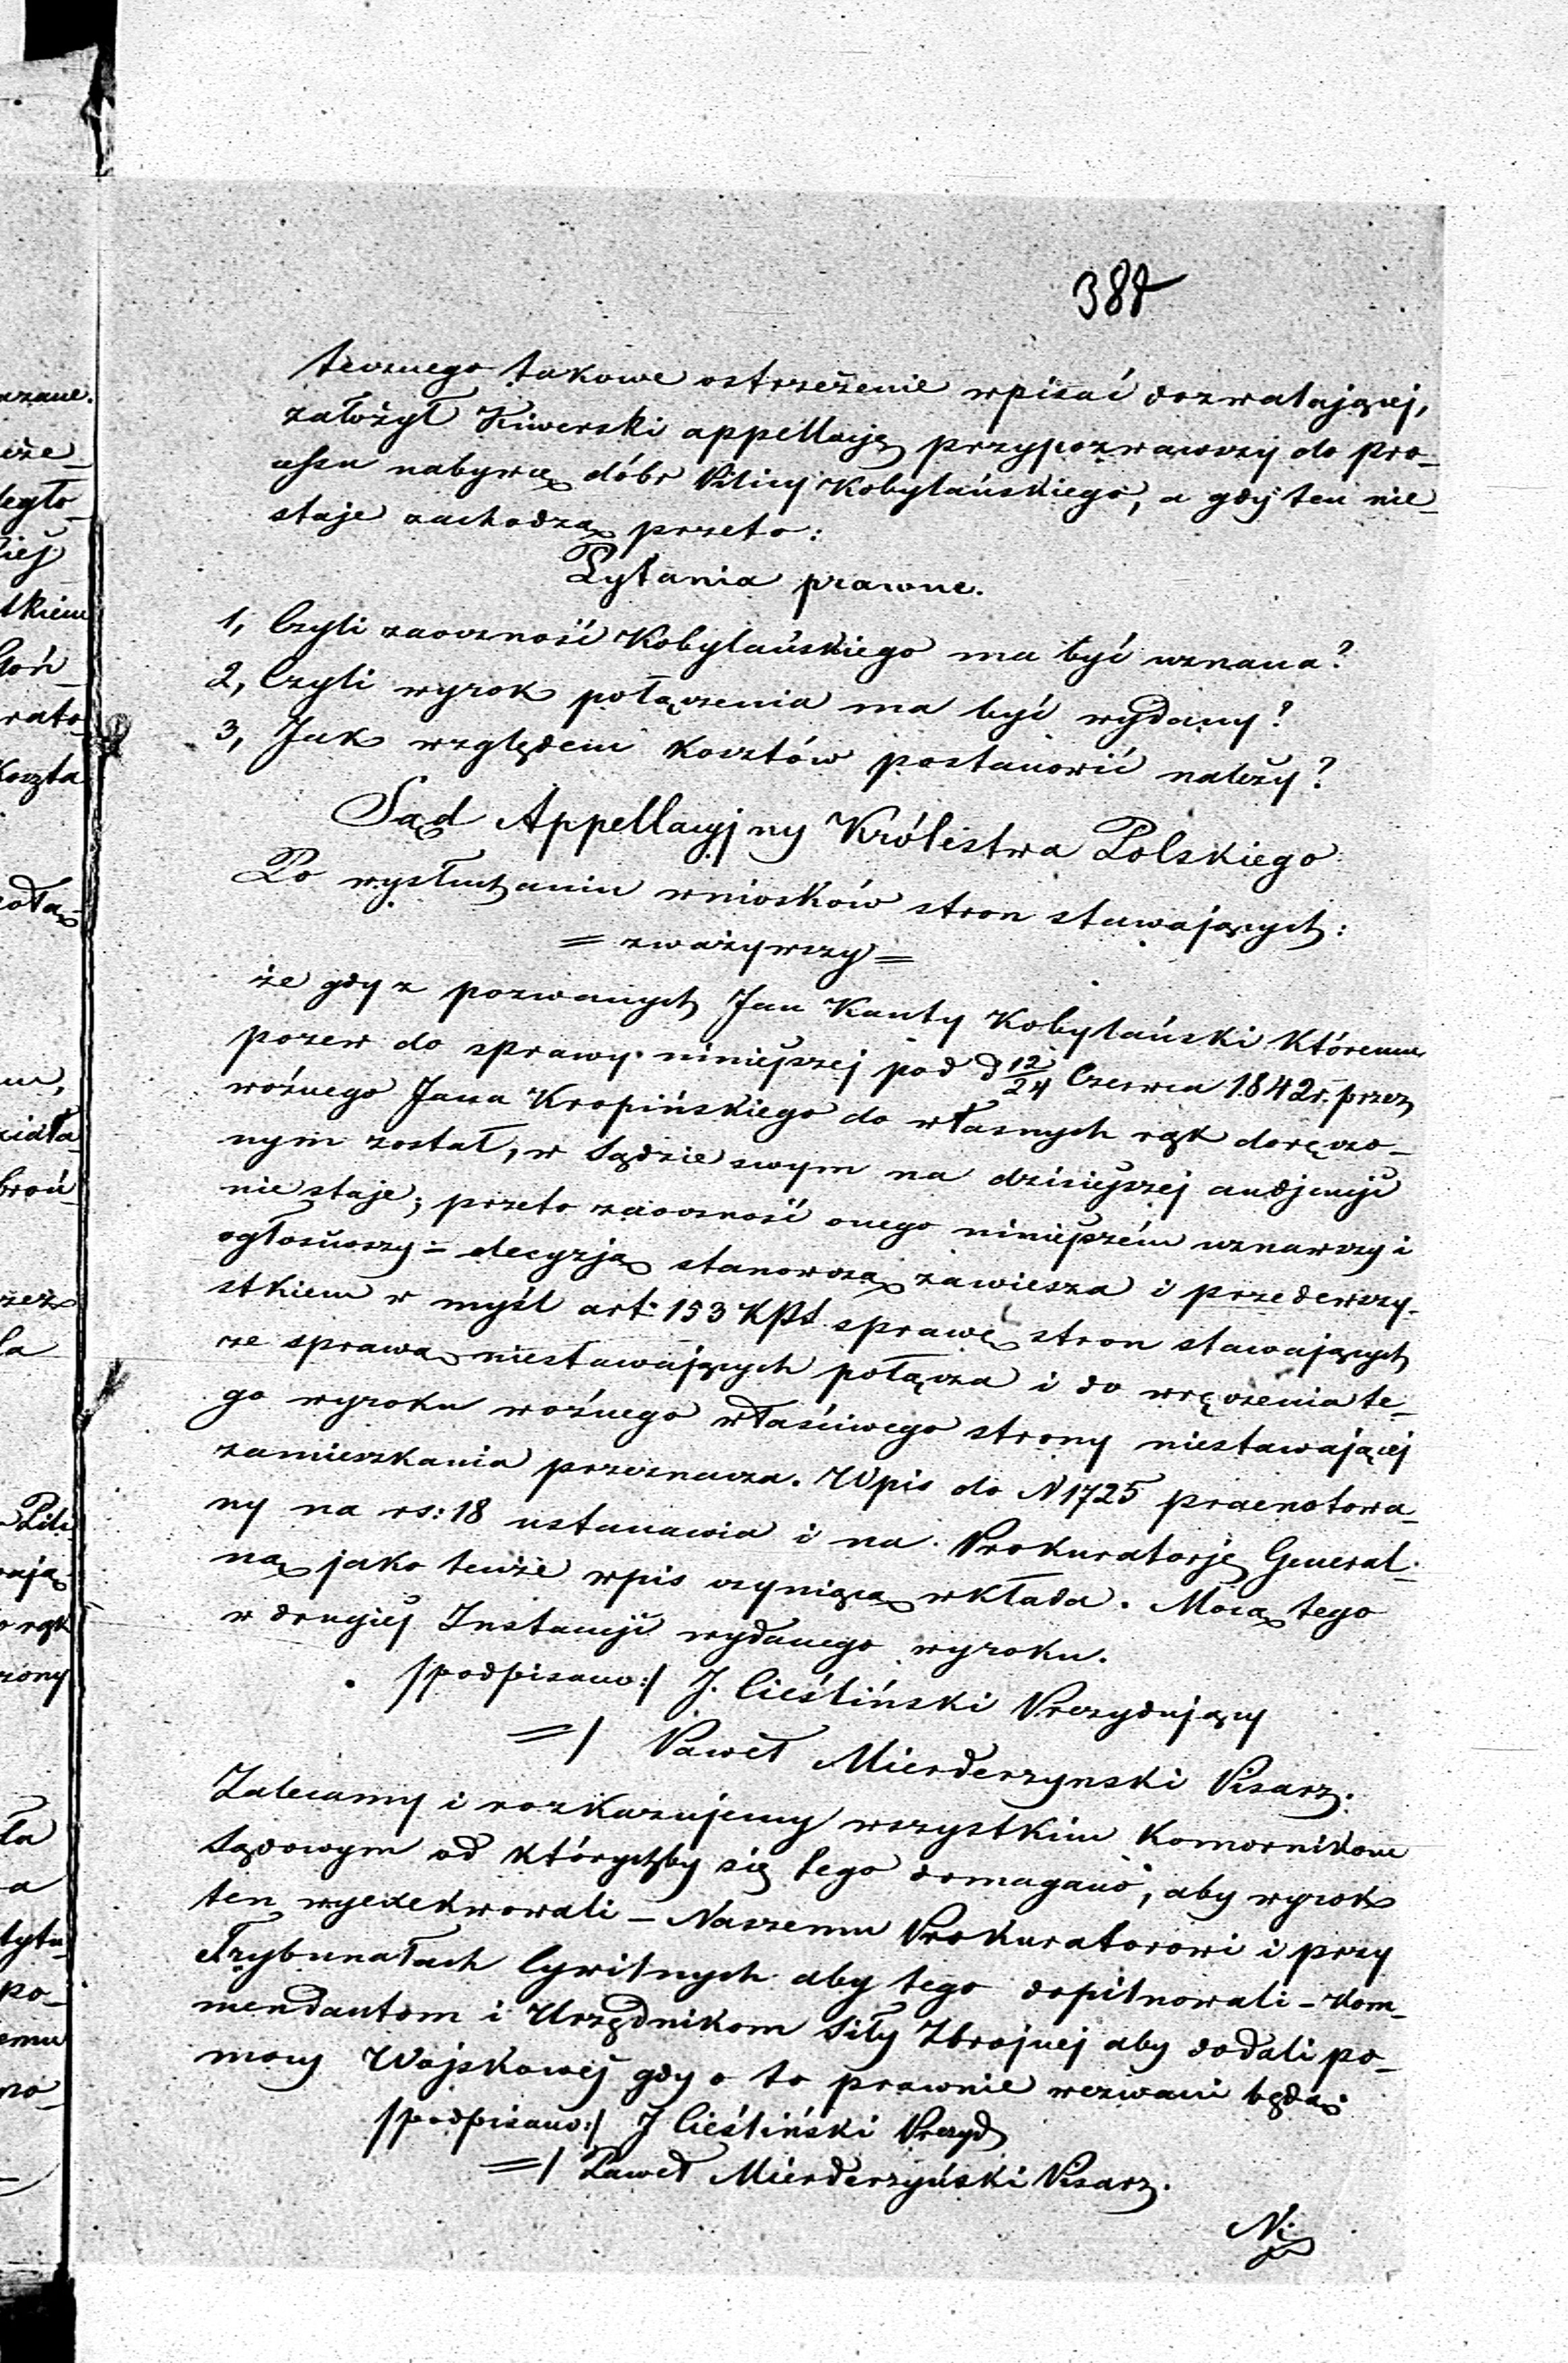 388
tecznego takowe ostrzeżenie wpisać dozwalającej,
założył Kiwerski appellacją przypozwawszy do pro-
cessu nabywcę dóbr Pilicy Kobylańskiego, a gdy ten nie
staje zachodzą przeto:
Pytania prawne.
1, Czyli zaoczność Kobylańskiego ma być uznana?
2, Czyli wyrok połączenia ma być wydany?
3, Jak względem kosztów postanowić należy?
Sąd Appellacyjny Królestwa Polskiego
Po wysłuchaniu wniosków stron stawających:
= zważywszy =
że gdy z pozwanych Jan Kanty Kobylański któremu
pozew do sprawy niniejszej pod d 12/24 Czerwca 1842 r. przez
woźnego Jana Kropińskiego do własnych rąk doręczo-
nym został, w Sądzie swym na dzisiejszej audjencji
nie staje; przeto zaoczność onego niniejszém uznawszy i
ogłosiwszy = decyzją stanowczą zawiesza i przedewszy-
stkiem w myśl art: 153 KPS sprawę stron stawających
ze sprawą niestawających połącza i do wręczenia te-
go wyroku woźnego właściwego strony niestawającéj
zamieszkania przeznacza. Wpis do N 1725 praenotowa-
ny na rs: 18 ustanawia i na Prokuratorję General-
ną jako tenże wpis czyniącą wkłada. Mocą tego
w drugiéj Instancji wydanego wyroku.
/podpisano:/ J. Cieśliński Prezydujący
=/ Paweł Mierderzynski Pisarz.
Zalecamy i rozkazujemy wszystkim Komornikom
Sądowym od którychby się tego domagano, aby wyrok
ten wyexekwowali – Naszemu Prokuratorowi i przy
Trybunałach Cywilnych aby tego dopilnowali – Kom-
mendantom i Urzędnikom Siły Zbrojnéj aby dodali po-
mocy Wojskowéj gdy o to prawnie wezwani będą.
/podpisano:/ J Cieśliński Prezyd
=/ Paweł Mierderzyński Pisarz.